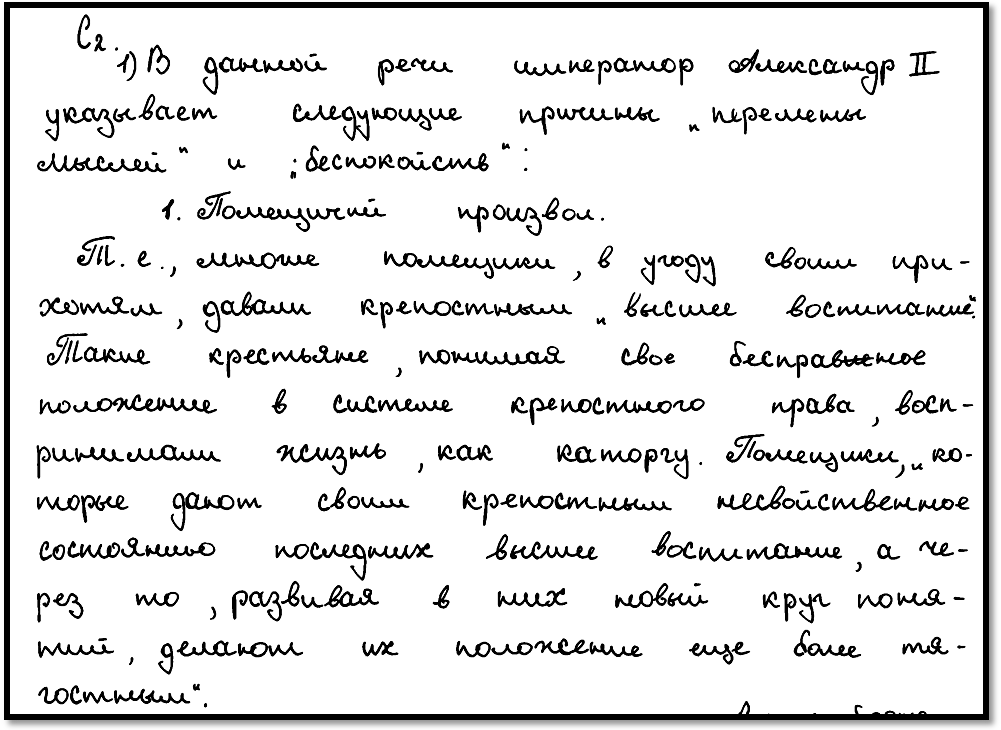 С2.
1) В данной речи император Александр II
указывает следующие причины „перемены
мыслей" и „беспокойств":
1. Помещичий произвол.
Т. е., многие помещики, в угоду своим при-
хотям, давали крепостным „высшее воспитание".
Такие крестьяне, понимая свое бесправное
положение в системе крепостного права, восп-
ринимали жизнь, как каторгу. Помещики, „ко-
торые дают своим крепостным несвойственное
состоянию последних высшее воспитание, а че-
рез то, развивая в них новый круг поня-
тий, делают их положение еще более тя-
гостным".